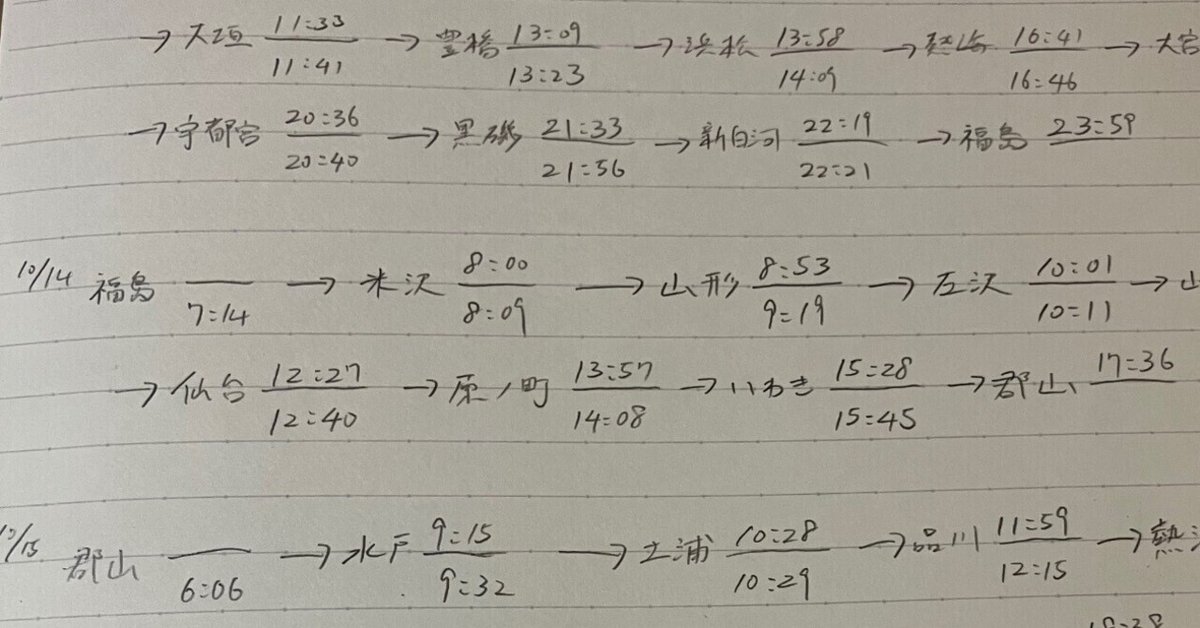 →大垣 11:33 → 豊橋 13:09 → 浜松 13:58 → 熱海 16:41 → 大宮
11:41 13:23 14:09 16:46
→宇都宮 20:36 → 黒磯 21:33 → 新白河 22:19 → 福島 23:59
20:40 21:56 22:21
10/14 福島 → 米沢 8:00 → 山形 8:53 → 左沢 10:01 → 山
7:14 8:09 9:19 10:11
→ 仙台 12:27 → 原ノ町 13:57 → いわき 15:28 → 郡山 17:36
12:40 14:08 15:45
10/15 郡山 → 水戸 9:15 → 土浦 10:28 → 品川 11:59 → 熱
6:06 9:32 10:29 12:15